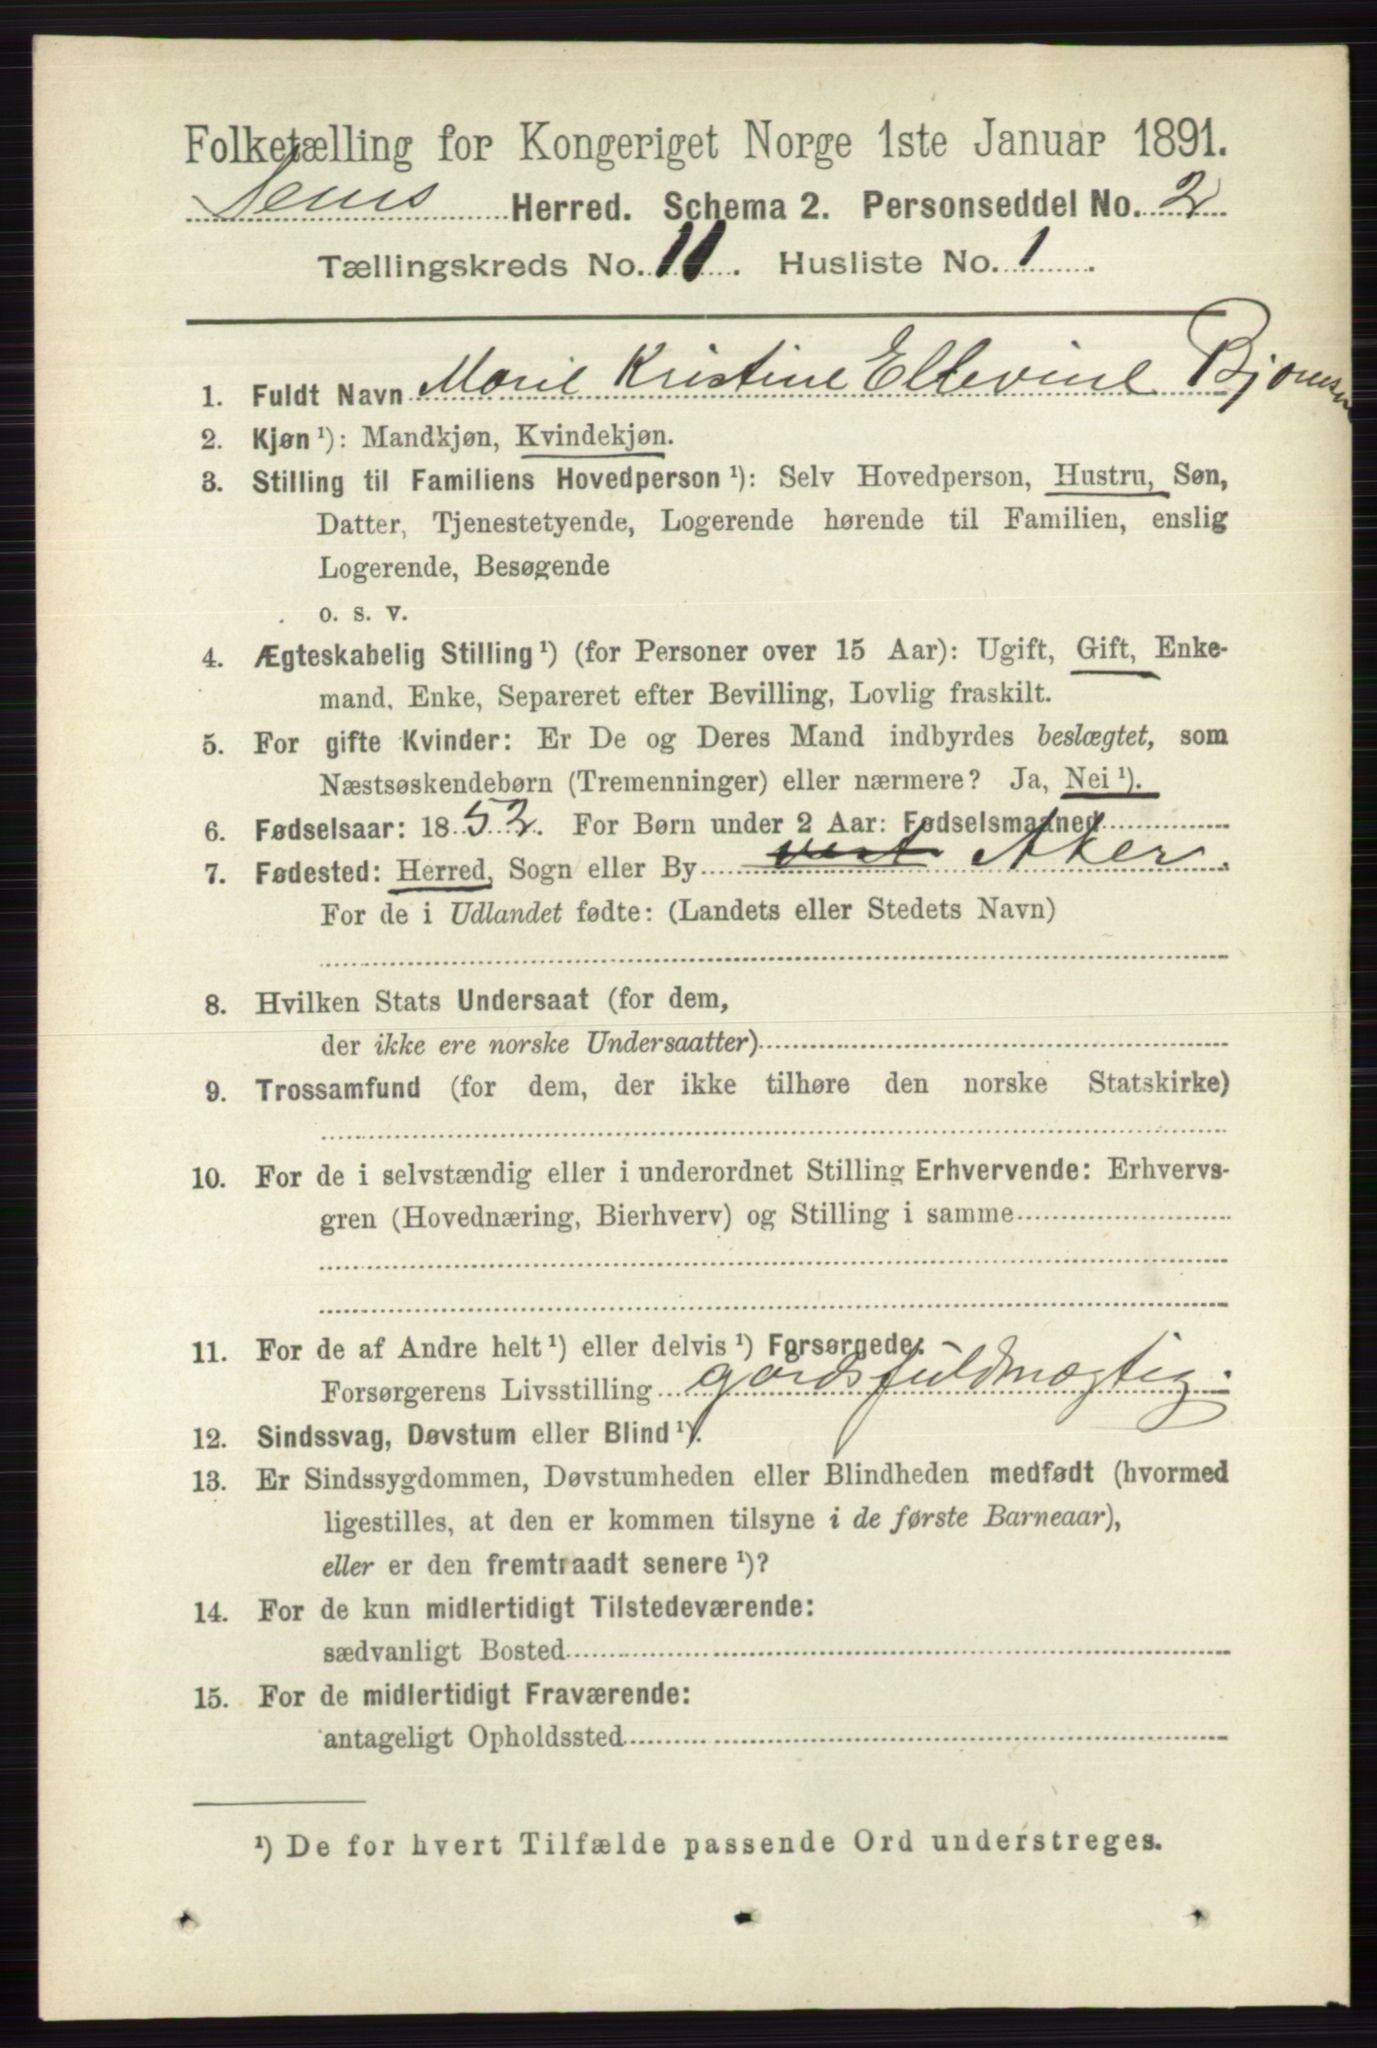 Folketælling for Kongeriget Norge 1ste Januar 1891.
Sems Herred. Schema 2. Personseddel No. 2
Tællingskreds No. 11. Husliste No. 1.
1. Fuldt Navn Marie Kristine Ellevine Bjørnsen
2. Kjøn ¹): Mandkjøn, Kvindekjøn.
3. Stilling til Familiens Hovedperson ¹): Selv Hovedperson, Hustru, Søn,
Datter, Tjenestetyende, Logerende hørende til Familien, enslig
Logerende, Besøgende
o. s. v.
4. Ægteskabelig Stilling ¹) (for Personer over 15 Aar): Ugift, Gift, Enke-
mand, Enke, Separeret efter Bevilling, Lovlig fraskilt.
5. For gifte Kvinder: Er De og Deres Mand indbyrdes beslægtet, som
Næstsøskendebørn (Tremenninger) eller nærmere? Ja, Nei ¹).
6. Fødselsaar: 1852. For Børn under 2 Aar: Fødselsmaaned
7. Fødested: Herred, Sogn eller By vest Aker.
For de i Udlandet fødte: (Landets eller Stedets Navn)
8. Hvilken Stats Undersaat (for dem,
der ikke ere norske Undersaatter)
9. Trossamfund (for dem, der ikke tilhøre den norske Statskirke)
10. For de i selvstændig eller i underordnet Stilling Erhvervende: Erhvervs-
gren (Hovednæring, Bierhverv) og Stilling i samme
11. For de af Andre helt ¹) eller delvis ¹) Forsørgede:
Forsørgerens Livsstilling gordsfuldmægtig.
12. Sindssvag, Døvstum eller Blind ¹).
13. Er Sindssygdommen, Døvstumheden eller Blindheden medfødt (hvormed
ligestilles, at den er kommen tilsyne i de første Barneaar),
eller er den fremtraadt senere ¹)?
14. For de kun midlertidigt Tilstedeværende:
sædvanligt Bosted
15. For de midlertidigt Fraværende:
antageligt Opholdssted
¹) De for hvert Tilfælde passende Ord understreges.